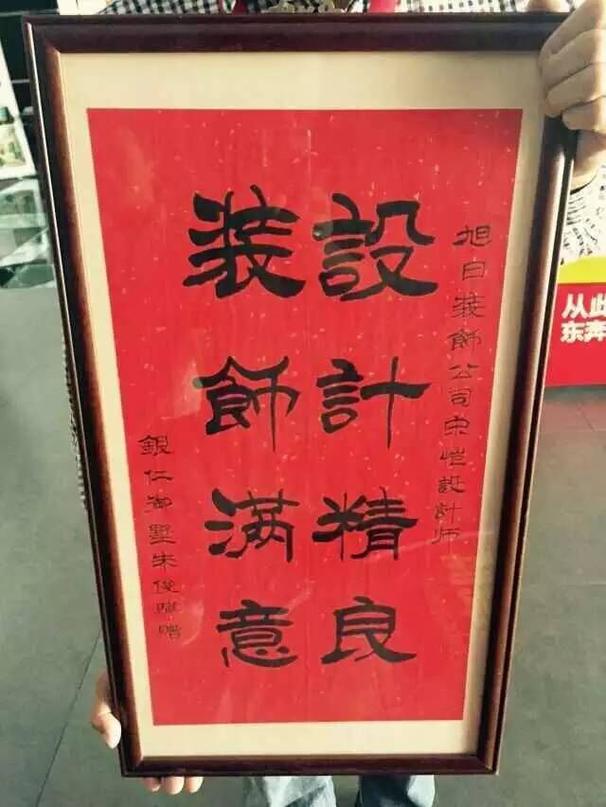 旭日装飾公司宋恺設計师
設計精良
装飾滿意
銀仁御墅朱俊敬赠
从此
东奔